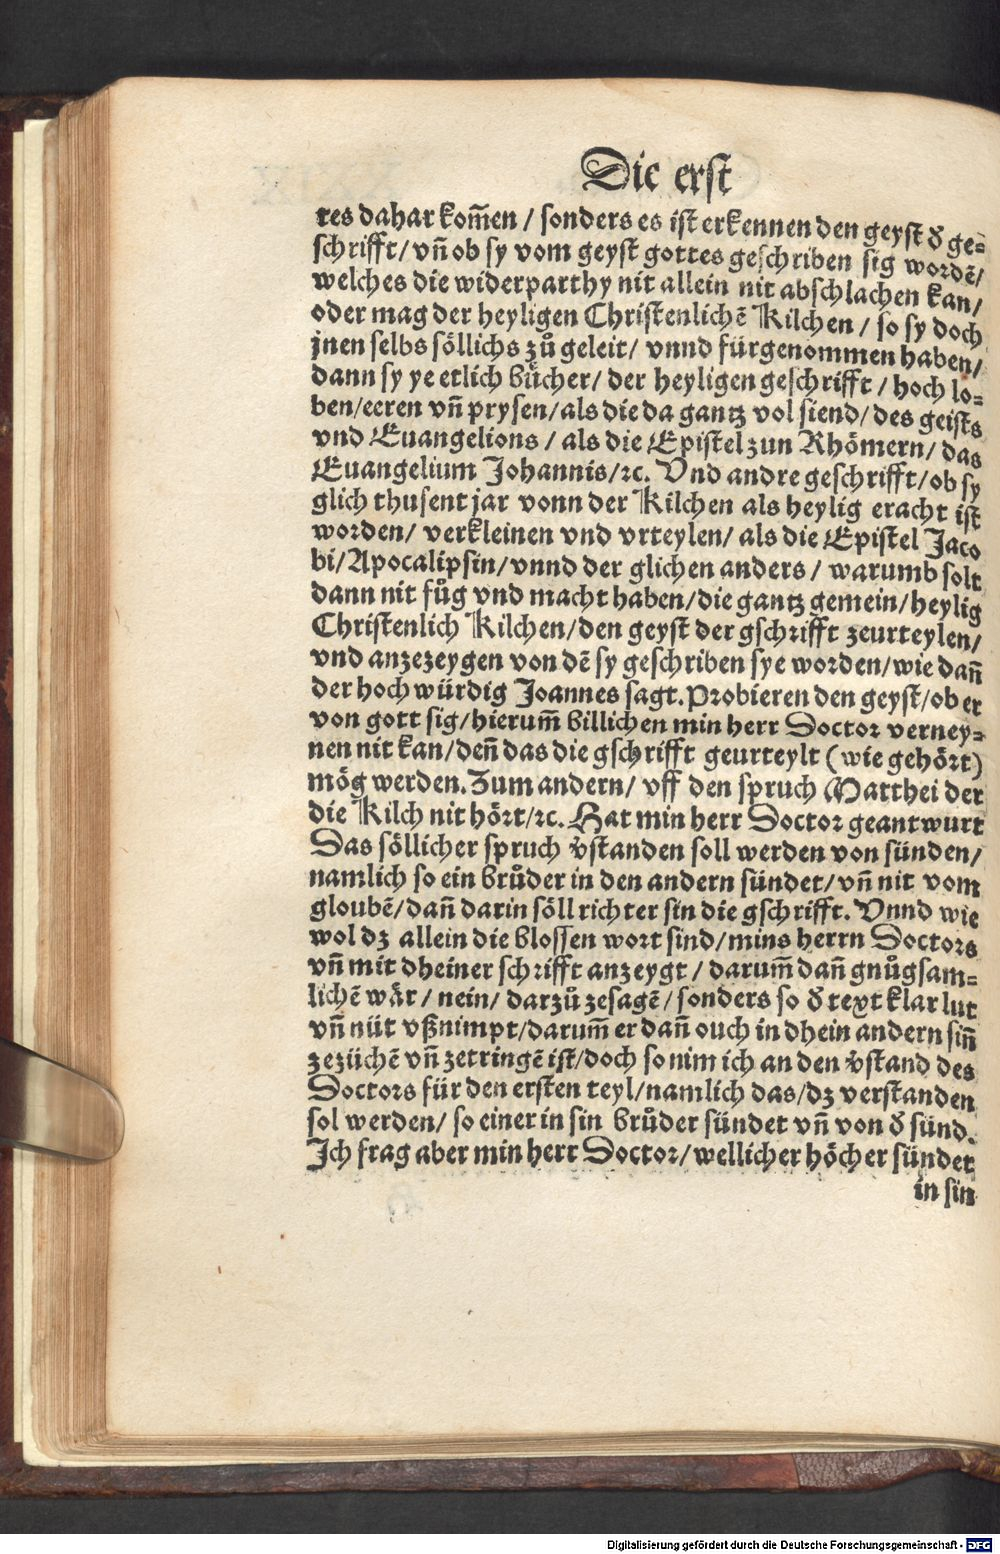 Die erst
tes dahar kom̃en / sonders es ist erkennen den geyst ď ge⸗
schrifft / vñ ob sy vom geyst gottes geschriben sig wordẽ /
welches die widerparthy nit allein nit abschlachen kan /
oder mag der heyligen Christenlichẽ Kilchen / so sy doch
jnen selbs söllichs zů geleit / vnnd fürgenommen haben /
dann sy ye etlich bücher / der heyligen geschrifft / hoch lo⸗
ben / eeren vñ prysen / als die da gantz vol siend / des geists
vnd Euangelions / als die Epistel zun Rhömern / das
Euangelium Johannis / ꝛc. Vnd andre geschrifft / ob sy
glich thusent jar vonn der Kilchen als heylig eracht ist
worden / verkleinen vnd vrteylen / als die Epistel Jaco
bi / Apocalipsin / vnnd der glichen anders / warumb solt
dann nit fůg vnd macht haben / die gantz gemein / heylig
Christenlich Kilchen / den geyst der gschrifft zeurteylen /
vnd anzezeygen von dẽ sy geschriben sye worden / wie dañ
der hochwürdig Joannes sagt. Probieren den geyst / ob er
von gott sig / hierum̃ billichen min herr Doctor verney⸗
nen nit kan / deñ das die gschrifft geurteylt (wie gehört)
mög werden. Zum andern / vff den spruch Matthei der
die Kilch nit hört / ꝛc. Hat min herr Doctor geantwurt
Das söllicher spruch v̓standen soll werden von sünden /
namlich so ein brůder in den andern sündet / vñ nit vom
gloubẽ / dañ darin söll richter sin die gschrifft. Vnnd wie
wol dz allein die blossen wort sind / mins herrn Doctors
vñ mit dheiner schrifft anzeygt / darum̃ dañ gnůgsam⸗
lichẽ wär / nein / darzů zesagẽ / sonders so ď text klar lut
vñ nüt vßnimpt / darum̃ er dañ ouch in dhein andern siñ
zezüchẽ vñ zetringẽ ist / doch so nim ich an den v̓stand des
Doctors für den ersten teyl / namlich das / dz verstanden
sol werden / so einer in sin brůder sündet vñ von ď sünd.
Ich frag aber min herr Doctor / wellicher höcher sündet
in sin
Digitalisierung gefördert durch die Deutsche Forschungsgemeinschaft - DFG